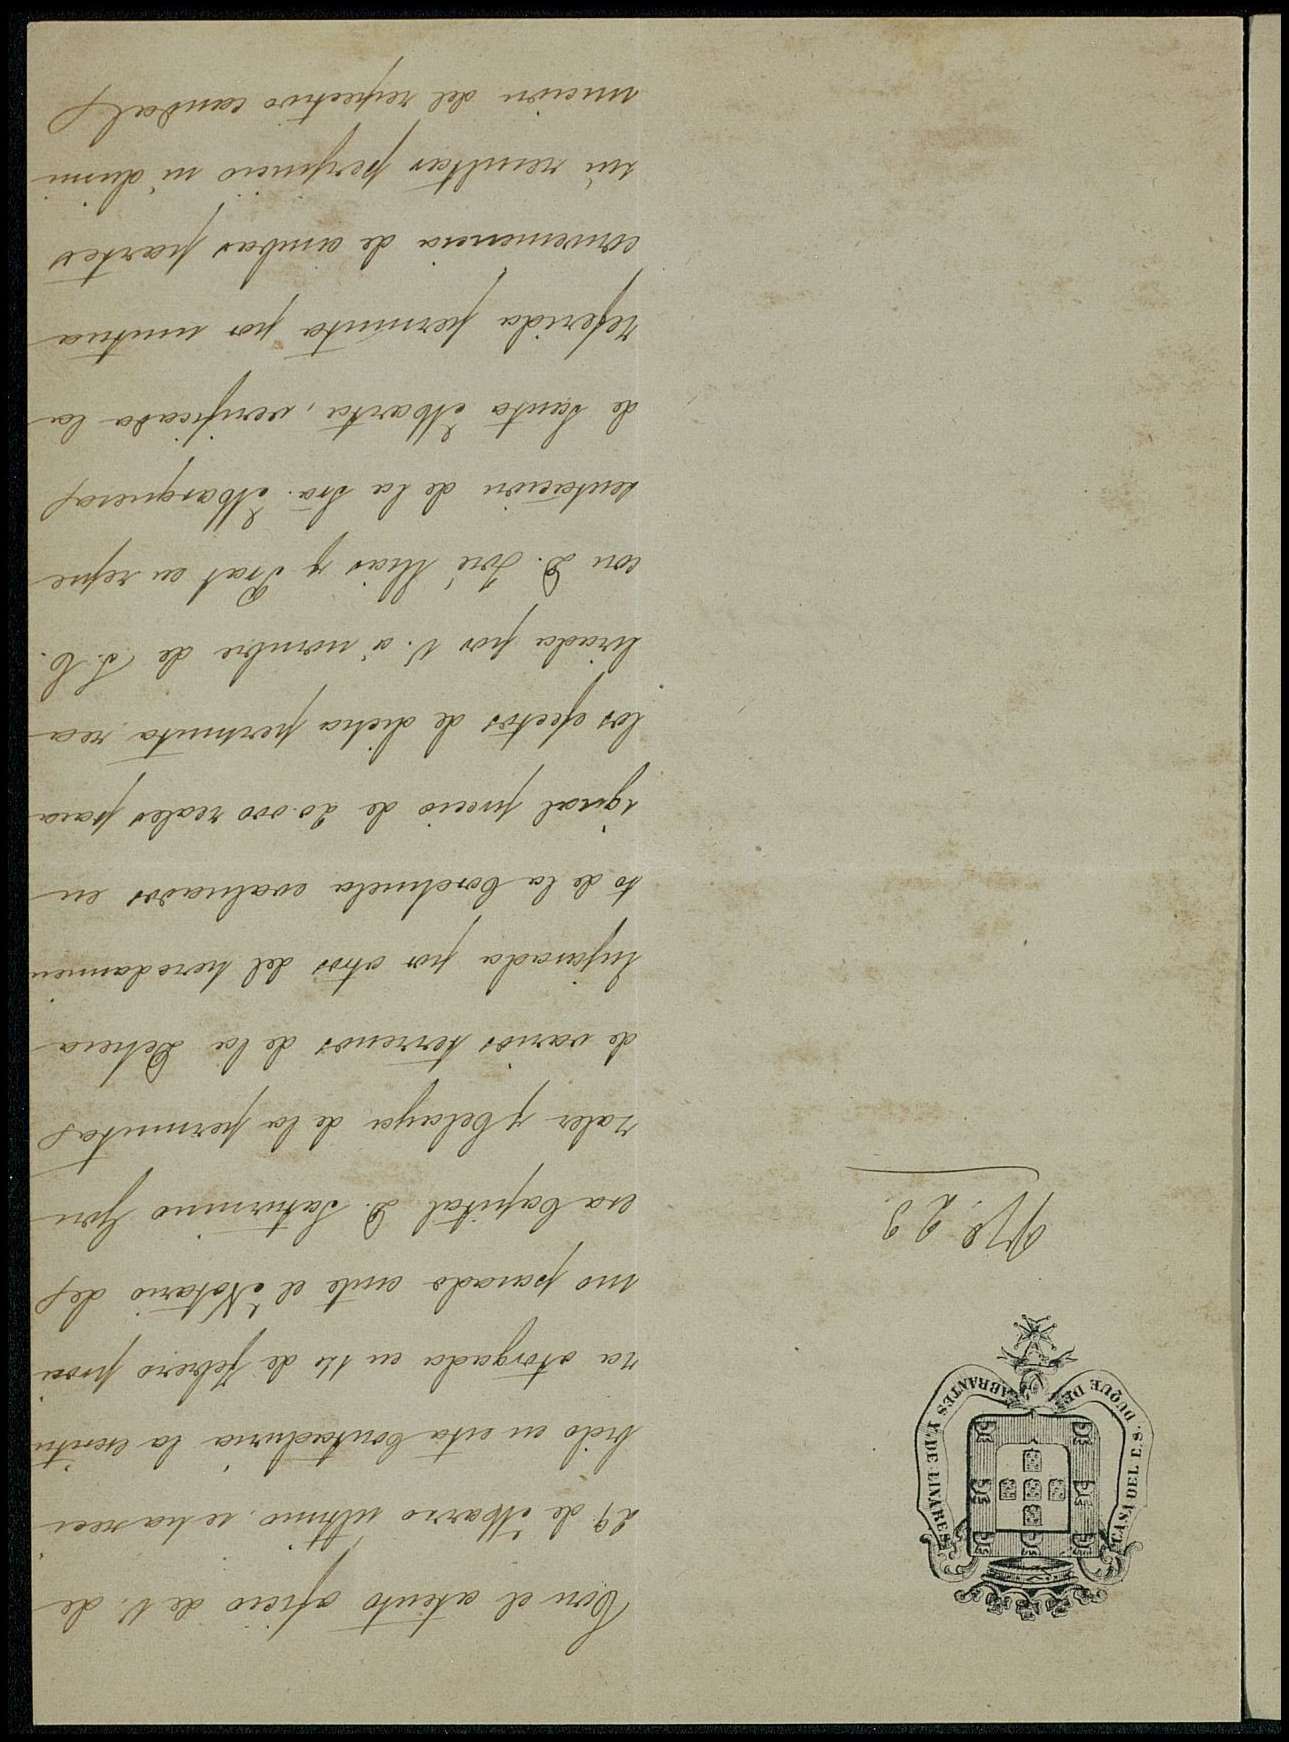 CASA DEL E.S. DUQUE DE ABRANTES Y DE LINARES
Nº. 23.
Con el atento oficio de V. de
29 de Marzo ultimo, se ha reci
bido en esta Contaduria la escritu
ra otorgada en 12 de febrero proxi
mo pasado ante el Notario de
esa Capital D. Saturnino Gon
zalez y Celaya de la permuta
de varios terrenos de la Dehesa
por otros del heredamien
to de la Corchuela evaluados en
igual precio de 20.000 reales para
los efectos de dicha permuta rea
lizada por V. á nombre de S.E.
con D. José Mas y Prat en repre
sentación de la Sra. Marquesa
de Santa Marta, verificada la
referida permuta por mutua
conveniencia de ambas partes
sin resultar perjuicio ni dismi
nucion del respectivo caudal